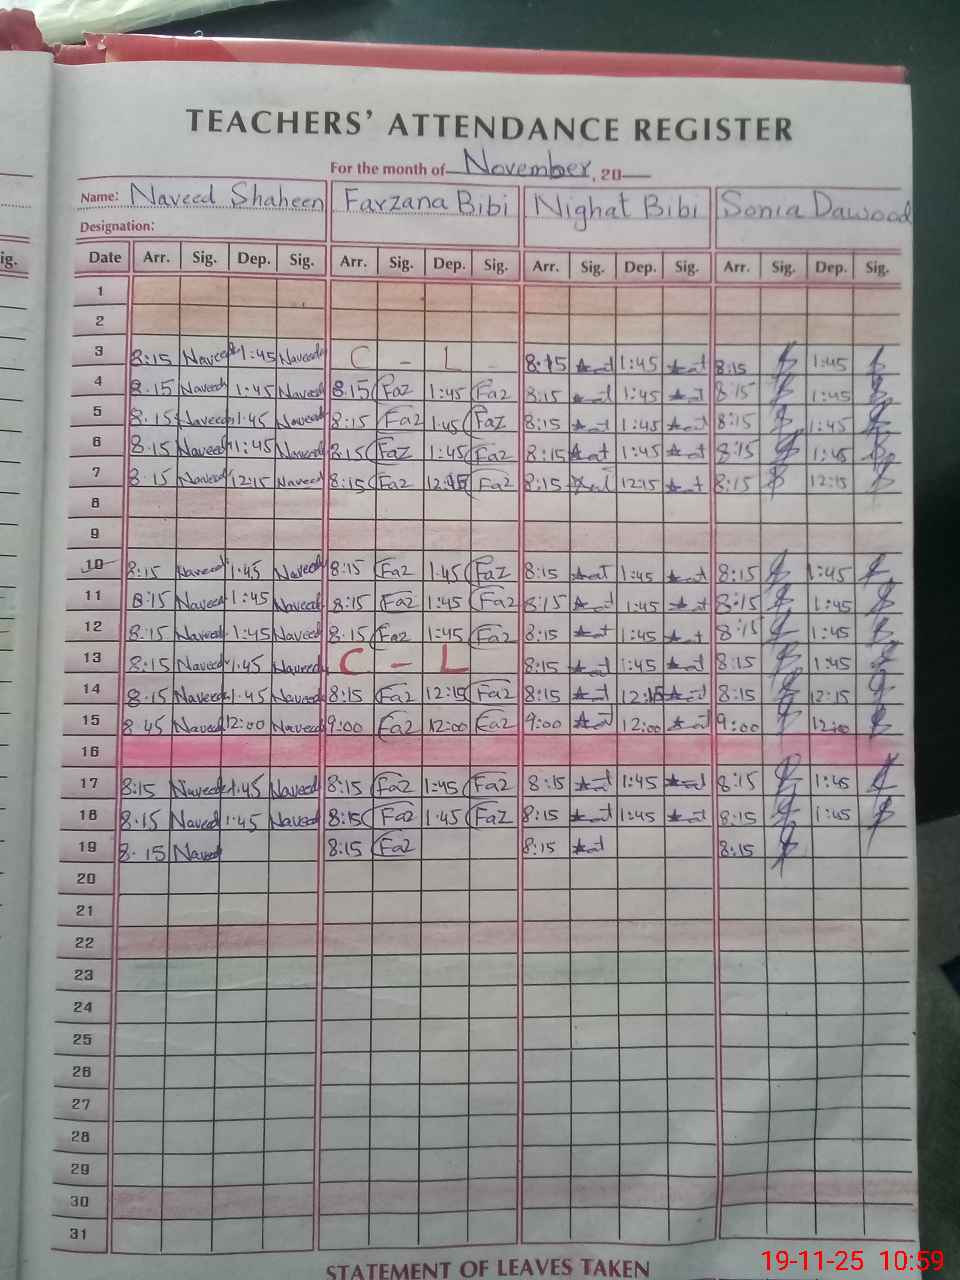 TEACHERS' ATTENDANCE REGISTER
For the month of November, 20
Name: Naveed Shaheen Farzana Bibi Nighat Bibi Sonia Dawood
Designation:
ig. Date Arr. Sig. Dep. Sig. Arr. Sig. Dep. Sig. Arr. Sig. Dep. Sig. Arr. Sig. Dep. Sig.
1
2
3 8:15 Naveed 1:45 Naveed C - L - 8:15 1:45 8:15 1:45
4 8:15 Naveed 1:45 Naveed 8:15 Faz 1:45 Faz 8:15 1:45 8:15 1:45
5 8:15 Naveed 1:45 Naveed 8:15 Faz 1:45 Faz 8:15 1:45 8:15 1:45
6 8:15 Naveed 1:45 Naveed 8:15 Faz 1:45 Faz 8:15 1:45 8:15 1:45
7 8:15 Naveed 12:15 Naveed 8:15 Faz 12:15 Faz 8:15 12:15 8:15 12:15
8
9
10 8:15 Naveed 1:45 Naveed 8:15 Faz 1:45 Faz 8:15 1:45 8:15 1:45
11 8:15 Naveed 1:45 Naveed 8:15 Faz 1:45 Faz 8:15 1:45 8:15 1:45
12 8:15 Naveed 1:45 Naveed 8:15 Faz 1:45 Faz 8:15 1:45 8:15 1:45
13 8:15 Naveed 1:45 Naveed C - L 8:15 1:45 8:15 1:45
14 8:15 Naveed 1:45 Naveed 8:15 Faz 12:15 Faz 8:15 12:15 8:15 12:15
15 8:45 Naveed 12:00 Naveed 9:00 Faz 12:00 Faz 9:00 12:00 9:00 12:00
16
17 8:15 Naveed 1:45 Naveed 8:15 Faz 1:45 Faz 8:15 1:45 8:15 1:45
18 8:15 Naveed 1:45 Naveed 8:15 Faz 1:45 Faz 8:15 1:45 8:15 1:45
19 8:15 Naveed 8:15 Faz 8:15 8:15
20
21
22
23
24
25
26
27
28
29
30
31
STATEMENT OF LEAVES TAKEN
19-11-25 10:59